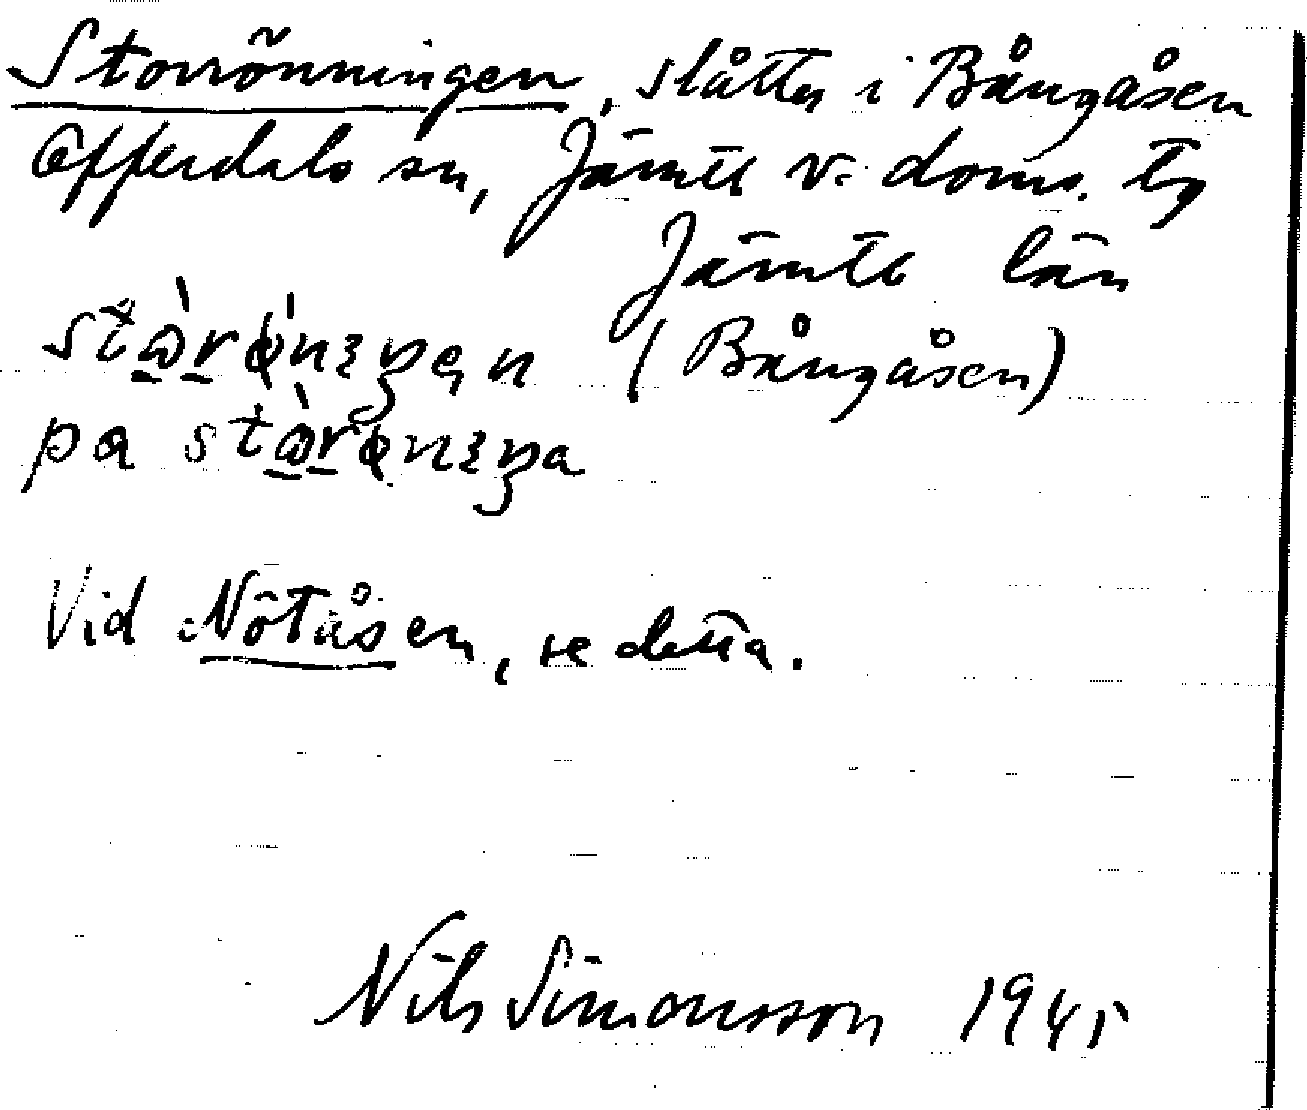 Storrönningen, slåtter i Bångåsen
Offerdals sn, Jämtl v. doms. tg
Jämtl län
(Bångåsen)
pa
Vid Nötåsen, se detta.
Nils Simonsson 1945